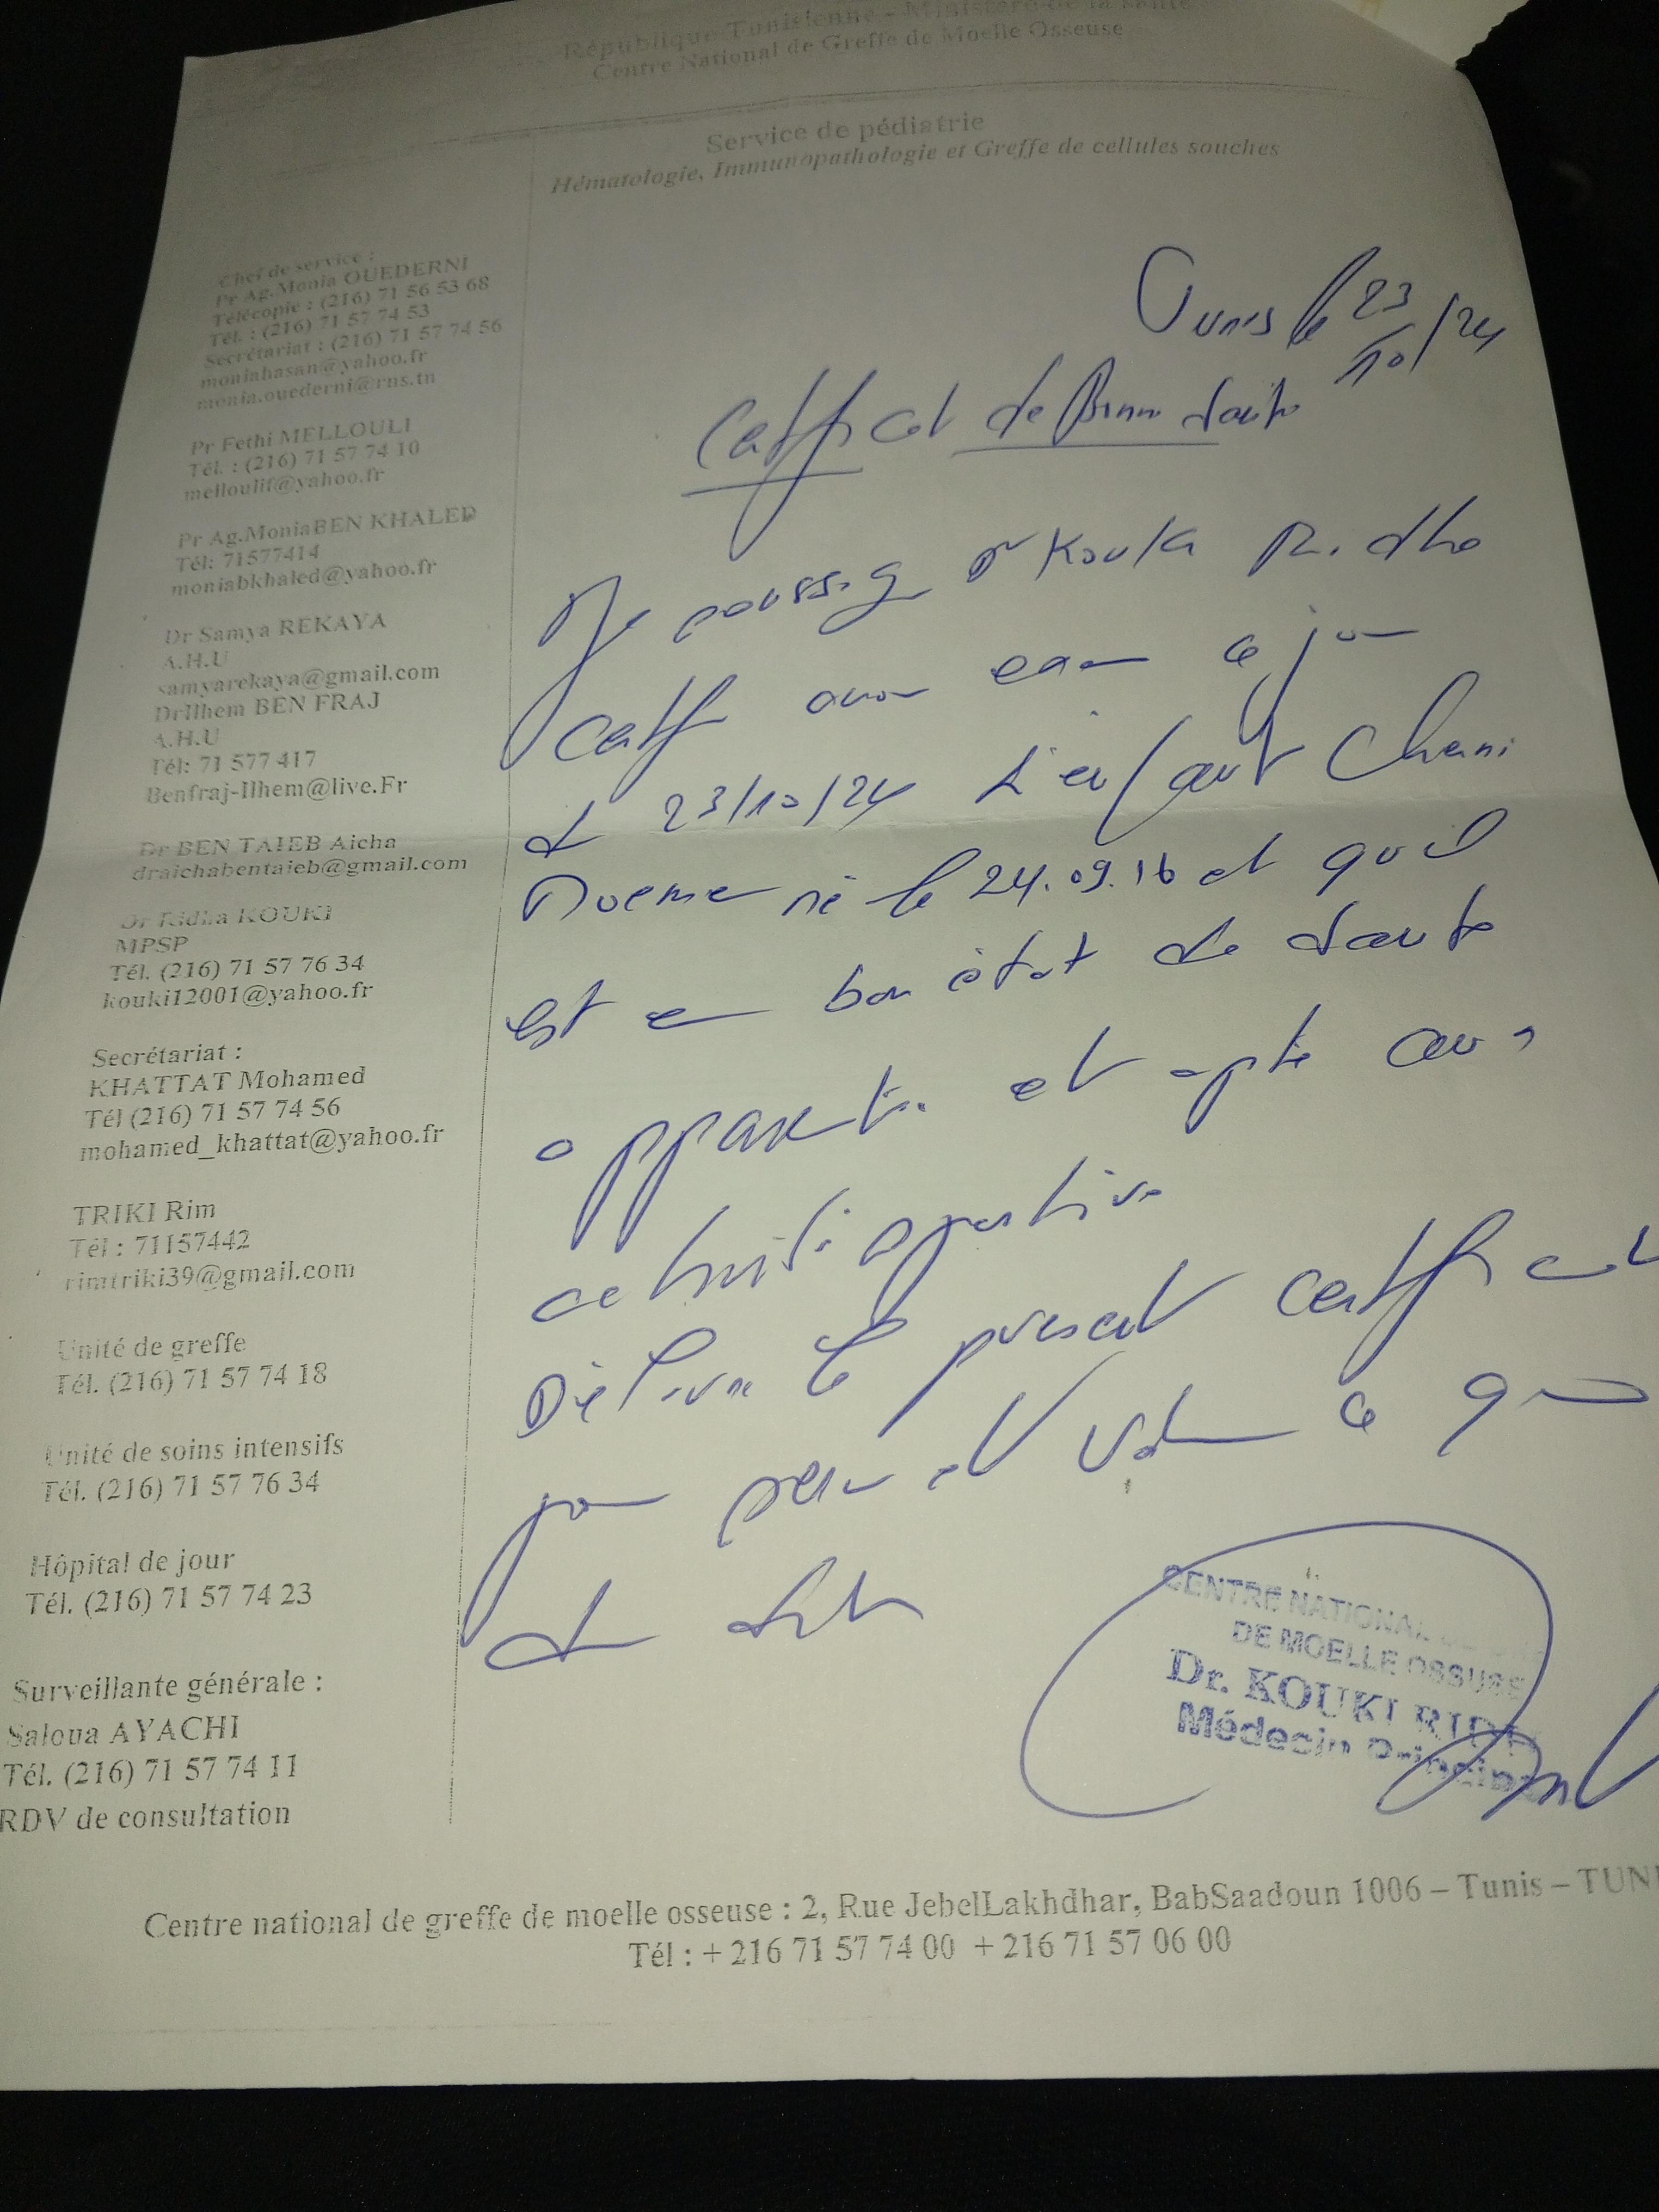 République Tunisienne - Ministère de la Santé
Centre National de Greffe de Moelle Osseuse
Service de pédiatrie
Hématologie, Immunopathologie et Greffe de cellules souches
Chef de service :
Pr Ag. Monia OUEDERNI
Télécopie : (216) 71 56 53 68
Tél. : (216) 71 57 74 53
Secrétariat : (216) 71 57 74 56
moniahasan@yahoo.fr
monia.ouederni@rns.tn
Pr Fethi MELLOULI
Tél. : (216) 71 57 74 10
melloulif@yahoo.fr
Pr Ag.MoniaBEN KHALED
Tél: 71577414
moniabkhaled@yahoo.fr
Dr Samya REKAYA
A.H.U
samyarekaya@gmail.com
DrIlhem BEN FRAJ
A.H.U
Tél: 71 577 417
Benfraj-Ilhem@live.Fr
Dr BEN TAIEB Aicha
draichabentaieb@gmail.com
Dr Ridha KOUKI
MPSP
Tél. (216) 71 57 76 34
kouki12001@yahoo.fr
Secrétariat :
KHATTAT Mohamed
Tél (216) 71 57 74 56
mohamed_khattat@yahoo.fr
TRIKI Rim
Tél : 71157442
rimtriki39@gmail.com
Unité de greffe
Tél. (216) 71 57 74 18
Unité de soins intensifs
Tél. (216) 71 57 76 34
Hôpital de jour
Tél. (216) 71 57 74 23
Surveillante générale :
Saloua AYACHI
Tél. (216) 71 57 74 11
RDV de consultation
Tunis le 23/10/24
Certificat de Bonne santé
Je soussigné Dr Kouki Ridha
certifie avoir examiné ce jour
le 23/10/24 L'enfant
né le 24.09.16 et qu'il
est en bon état de santé
apparente et apte aux
activités sportives
Délivré le présent certificat
pour servir et valoir ce que
de droit
CENTRE NATIONAL
DE MOELLE OSSUSE
Dr. KOUKI RIDHA
Médecin Principal
Centre national de greffe de moelle osseuse : 2, Rue JebelLakhdhar, BabSaadoun 1006 – Tunis – TUNI
Tél : + 216 71 57 74 00 + 216 71 57 06 00